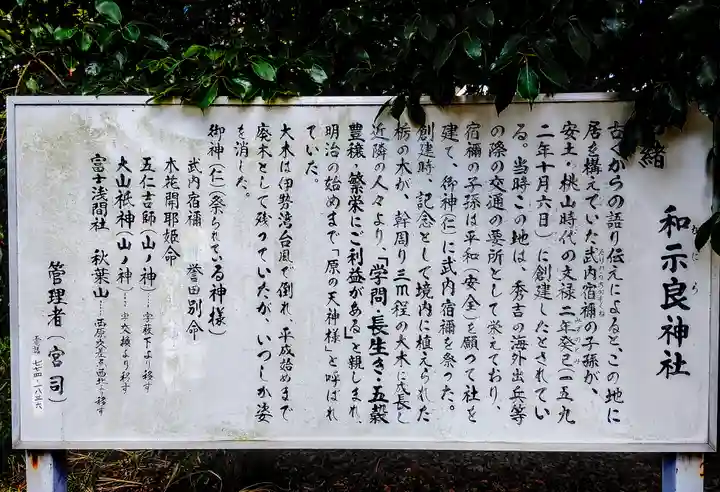 和示良神社
わにら
緒
古くからの語り伝えによると、この地に
居を構えていた武内宿禰の子孫が、
安土・桃山時代の文禄二年癸巳(一五九
二年十月六日)に創建したとされてい
る。当時この地は、秀吉の海外出兵等
の際の交通の要所として栄えており、
宿禰の子孫は平和(安全)を願って社を
建て、御神(仁)に武内宿禰を祭った。
創建時、記念として境内に植えられた
栃の木が、幹周り三m程の大木に成長し
近隣の人々より、「学問・長生き・五穀
豊穣、繁栄にご利益がある」と親しまれ、
明治の始めまで「原の天神様」と呼ばれ
ていた。
大木は伊勢湾台風で倒れ、平成始めまで
廃木として残っていたが、いつしか姿
を消した。
御神(仁)(祭られている神様)
武内宿禰 誉田別命
木花開耶姫命
五仁吉師(山ノ神)…字萩下より移す
大山祇神(山ノ神)…より移す
富士浅間社 秋葉山…より移す
管理者(宮司)
七七四-一八三六